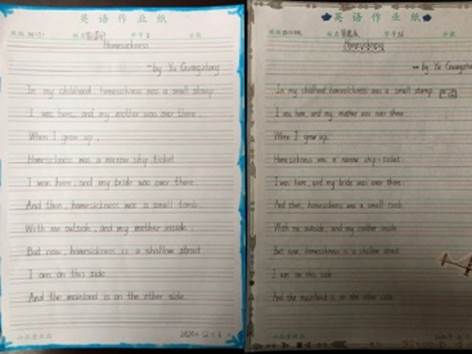 英语作业纸
Homesickness
—by Yu Guangzhong
In my childhood, homesickness was a small stamp.
I was here, and my mother was over there.
When I grow up,
Homesickness was a narrow ship ticket
I was here, and my bride was over there.
And then, homesickness was a small tomb,
With me outside, and my mother inside.
But now, homesickness is a shallow strait
I am on this side
And the mainland is on the other side.
英语作业纸
by Yu Guangzhong
In my childhood, homesickness was a small stamp
I was here, and my mother was over there
When I grow up,
Homesickness was a narrow ship ticket
I was here, and my bride was over there.
And then, homesickness was a small
With me outside, and my mother inside
But now, homesickness is a shallow strait
I am on this side
And the mainland is on the other side